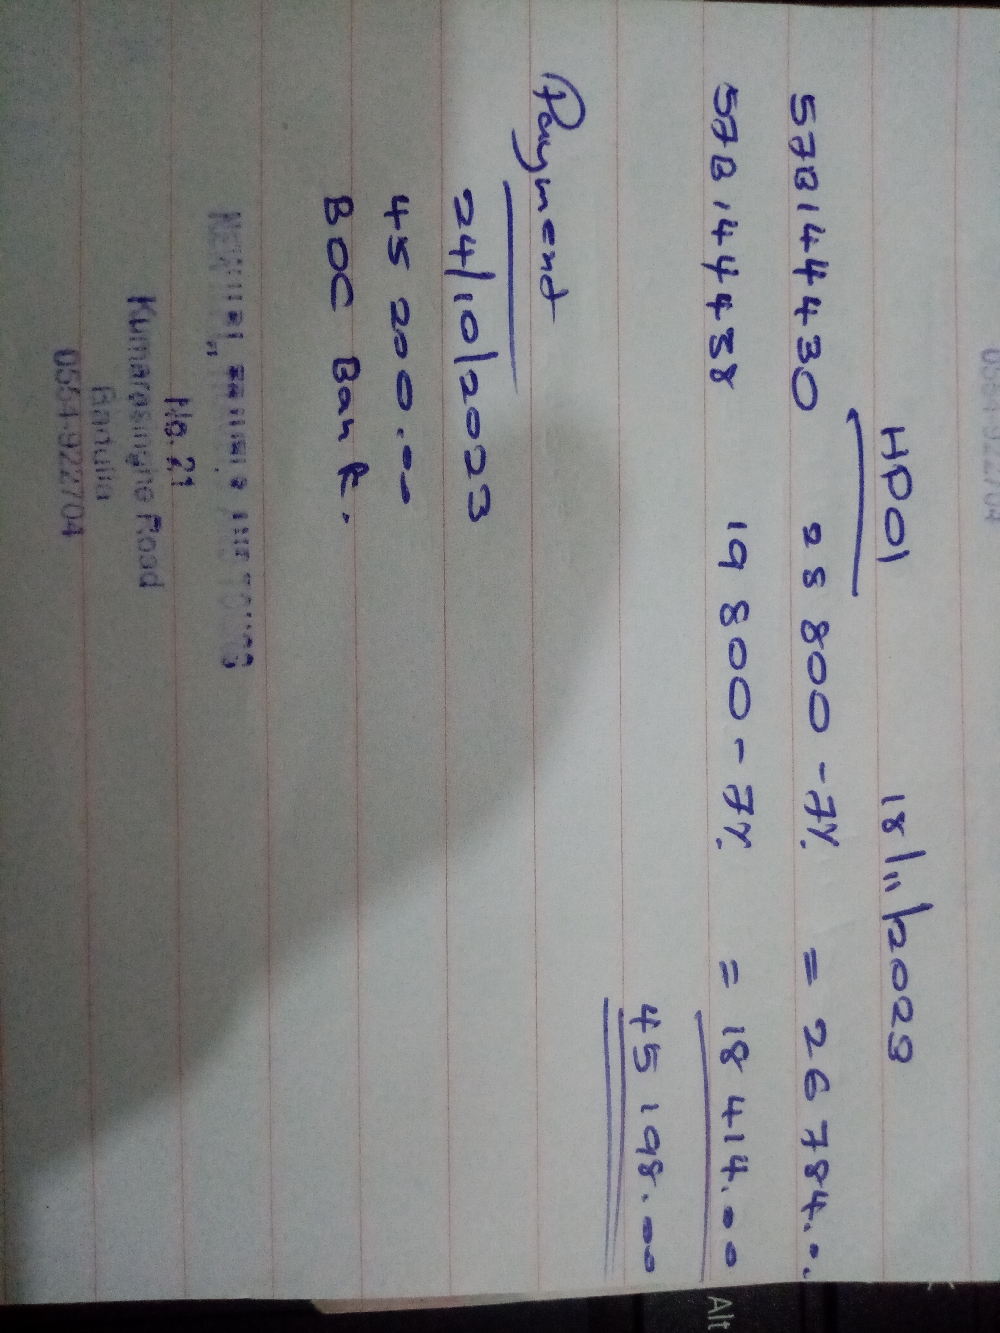 HP01 18/11/2023
57B144430 28 800 - 7% = 26 784.00
57B144438 19 800 - 7% = 18 414.00
45 198.00
Paymend
24/10/2023
45 200.00
BOC Bank.
No. 21
Kumarasinghe Road
Badulla
0554-922704
Alt